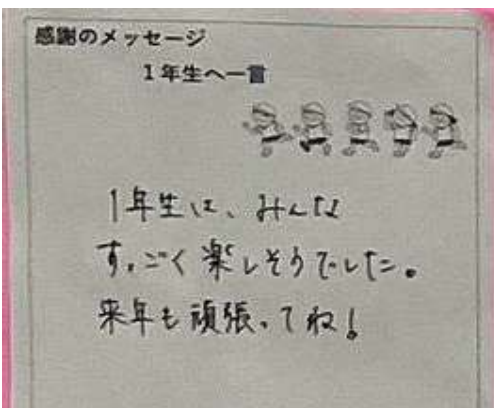 感謝のメッセージ
1年生へ一言
1年生は、みんな
すっごく楽しそうでした。
来年も頑張ってね!